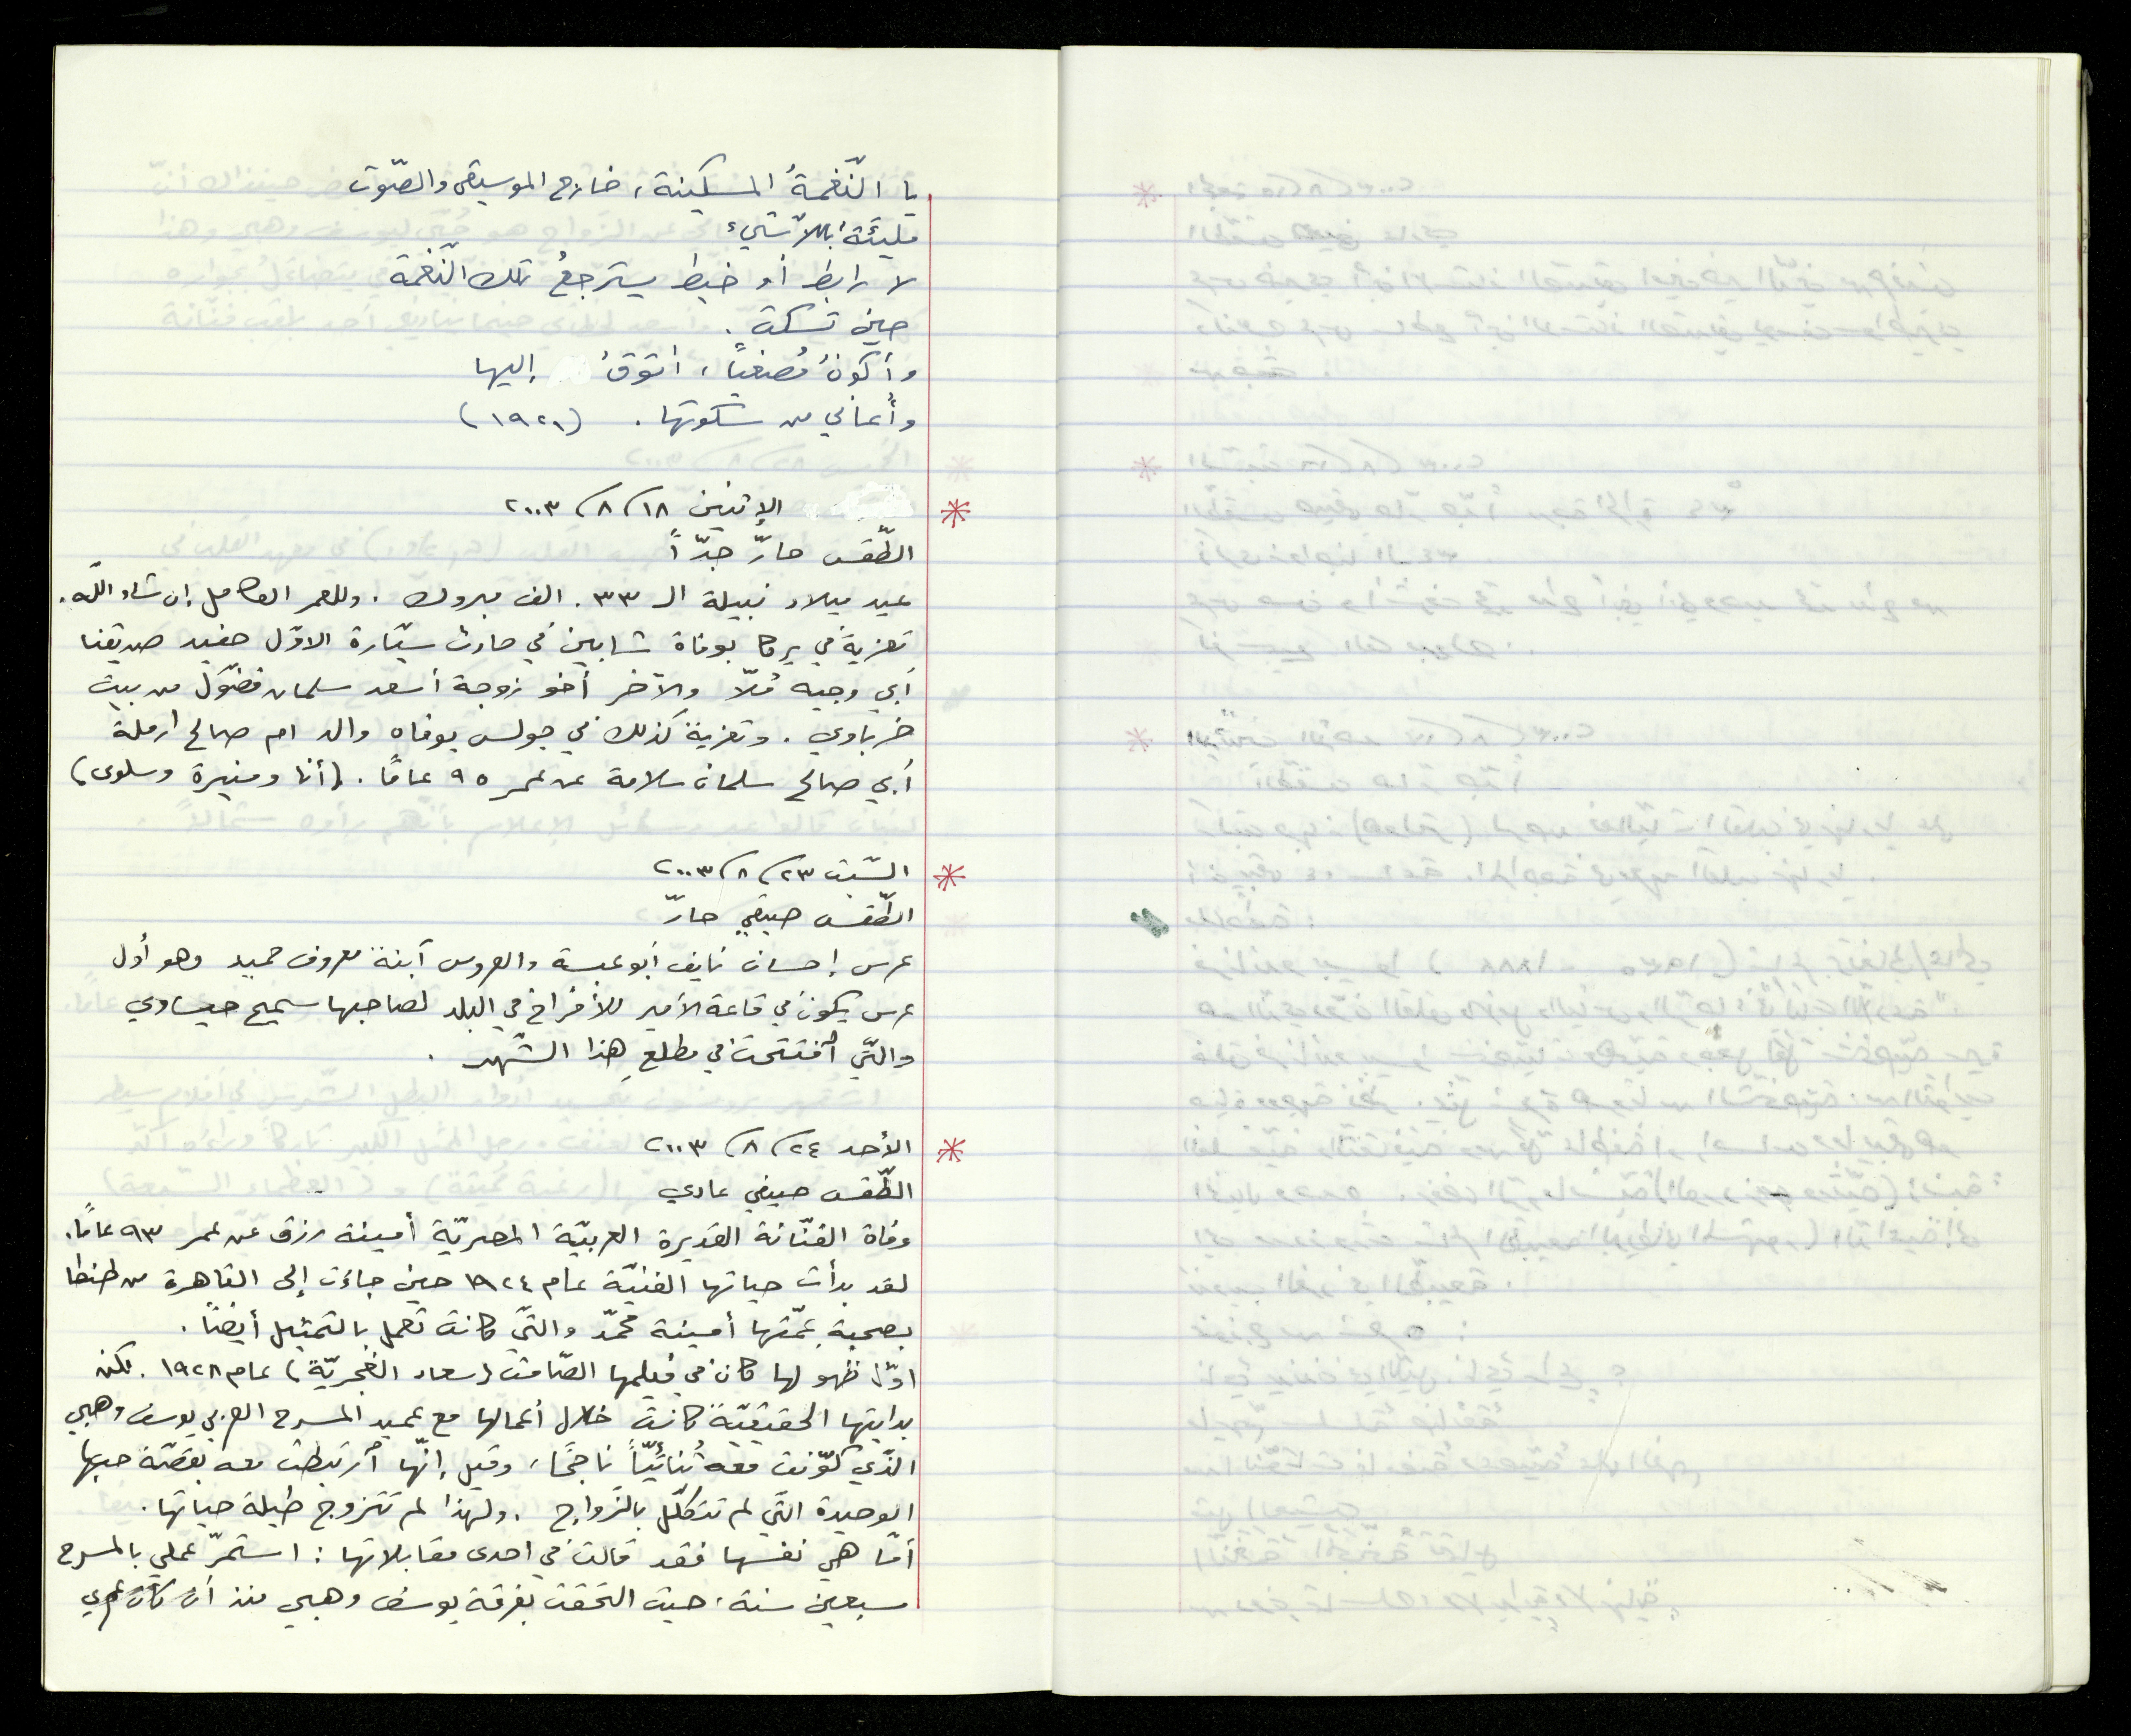 يا النّغمةُ المسكينة، خارج الموسيقى والصّوت
مليئة باللاّشيء
لا رابط أو خيط يسترجعُ تلك النّغمة
حين تسكت.
وأكونُ مُصغياً، أتوقُ إليها
وأعاني من سكوتها. (١٩٢١)
* الإثنين ١٨/٨/٢٠٠٣
الطّقس حارّ جدّاً
عيد ميلاد نبيلة الـ ٣٣. الف مبروك. وللعمر الكامل إن شاء اللّه.
تعزية في يركا بوفاة شابين في حادث سيّارة الاوّل حفيد صديقنا
أبي وجيه مُلّا والآخر أخو زوجة أسعد سلمان فضّول من بيت
خرباوي. وتعزية كذلك في جولس بوفاه والد ام صالح ارملة
أبي صالح سلمان سلامة عن عمر ٩٥ عامًا. (أنا ومنيرة وسلوى)
* السّبت ٢٣/٨/٢٠٠٣
الطّقس صيفي حارّ
عرس إحسان نايف أبو عبسة والعروس آبنة معروف حميد وهو أول
عرس يكون في قاعة الأمير للأفراح في البلد لصاحبها سميح حيساوي
والتّي آفتتحت في مطلع هذا الشّهر.
* الأحد ٢٤/٨/٢٠٠٣
الطّقس صيفي عادي
وفاة الفنّانة القديرة العربيّة المصريّة أمينة رزق عن عمر ٩٣ عامًا.
لقد بدأت حياتها الفنيّة عام ١٩٢٤ حين جاءت إلى القاهرة من طنطا
بصحبة عمّتها أمينة محمّد والتّي كانت تعمل بالتمثيل أيضًا.
اوّل ظهو لها كان في فيلمها الصّامت (سعاد الغجريّة) عام ١٩٢٨. لكن
بدايتها الحقيقيّة كانت خلال أعمالها مع عميد المسرح العربي يوسف وهبي
الذّي كوّنت معه ثنائيّاً ناجحًا، وقيل إنّها آرتبطت معه بقصّة حبها
الوحيدة التّي لم تتكلّل بالزّواج. ولهذا لم تتزوج طيلة حياتها.
أمّا هي نفسها فقد قالت في احدى مقابلاتها: استمرّ عملي بالمسرح
سبعين سنة، حيث التحقت بفرقة يوسف وهبي منذ أن كان عمري